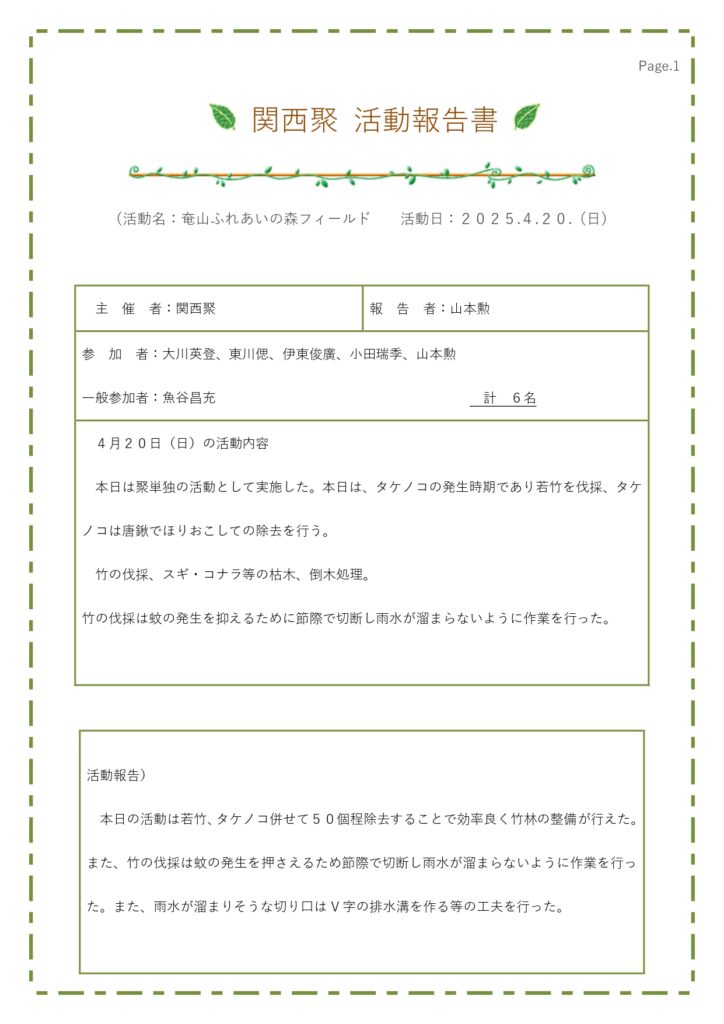 Page.1
関西聚 活動報告書
（活動名：奄山ふれあいの森フィールド　　活動日：２０２５.４.２０.（日）
主　催　者：関西聚
報　告　者：山本勲
参　加　者：大川英登、東川偲、伊東俊廣、小田瑞季、山本勲
一般参加者：魚谷昌充
計　６名
４月２０日（日）の活動内容
本日は聚単独の活動として実施した。本日は、タケノコの発生時期であり若竹を伐採、タケ
ノコは唐鍬でほりおこしての除去を行う。
竹の伐採、スギ・コナラ等の枯木、倒木処理。
竹の伐採は蚊の発生を抑えるために節際で切断し雨水が溜まらないように作業を行った。
活動報告）
本日の活動は若竹、タケノコ併せて５０個程除去することで効率良く竹林の整備が行えた。
また、竹の伐採は蚊の発生を押さえるため節際で切断し雨水が溜まらないように作業を行っ
た。また、雨水が溜まりそうな切り口はＶ字の排水溝を作る等の工夫を行った。